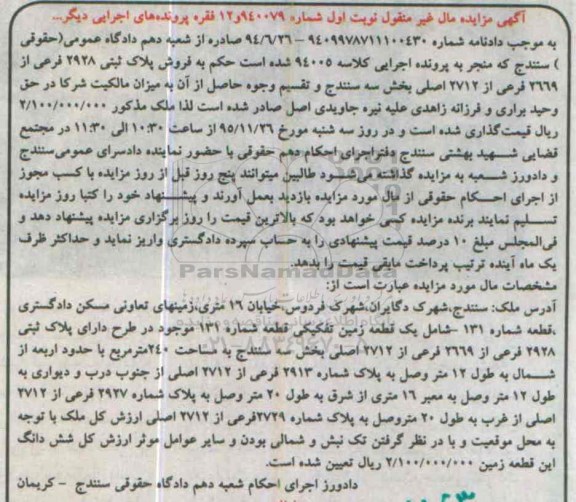 آگهی مزایده مال غیر منقول نوبت اول شماره ۹۴۰۰۷۹و۱۲ فقره پرونده‌های اجرایی دیگر...
به موجب دادنامه شماره ۹۴۰۹۹۷۸۷۱۱۱۰۰۴۳۰ – ۹۴/۶/۲۶ صادره از شعبه دهم دادگاه عمومی(حقوقی
) سنندج که منجر به پرونده اجرایی کلاسه ۹۴۰۰۵ شده است حکم به فروش پلاک ثبتی ۲۹۲۸ فرعی از
۲۶۶۹ فرعی از ۲۷۱۲ اصلی بخش سه سنندج و تقسیم وجوه حاصل از آن به میزان مالکیت شرکا در حق
وحید براری و فرزانه زاهدی علیه نیره جاویدی اصل صادر شده است لذا ملک مذکور ۲/۱۰۰/۰۰۰/۰۰۰
ریال قیمت‌گذاری شده است و در روز سه شنبه مورخ ۹۵/۱۱/۲۶ از ساعت ۱۰:۳۰ الی ۱۱:۳۰ در مجتمع
قضایی شهید بهشتی سنندج دفتراجرای احکام دهم حقوقی با حضور نماینده دادسرای عمومی‌سنندج
و دادورز شعبه به مزایده گذاشته می‌شود طالبین میتوانند پنج روز قبل از روز مزایده با کسب مجوز
از اجرای احکام حقوقی از مال مورد مزایده بازدید بعمل آورند و پیشنهاد خود را کتبا روز مزایده
تسلیم نمایند برنده مزایده کسی خواهد بود که بالاترین قیمت را روز برگزاری مزایده پیشنهاد دهد و
فی‌المجلس مبلغ ۱۰ درصد قیمت پیشنهادی را به حساب سپرده دادگستری واریز نماید و حداکثر ظرف
یک ماه آینده ترتیب پرداخت مابقی قیمت را بدهد.
ParsNamadData
مشخصات مال مورد مزایده عبارت است از:
آدرس ملک: سنندج،شهرک دگایران،شهرک فردوس،خیابان ۱۶ متری،زمینهای تعاونی مسکن دادگستری
،قطعه شماره ۱۳۱ -شامل یک قطعه زمین تفکیکی قطعه شماره ۱۳۱ موجود در طرح دارای پلاک ثبتی
۲۹۲۸ فرعی از ۲۶۶۹ فرعی از ۲۷۱۲ اصلی بخش سه سنندج به مساحت ۲۴۰مترمربع با حدود اربعه از
۰۲۱-۸۸۳۴۹۶۷۰
شمال به طول ۱۲ متر وصل به پلاک شماره ۲۹۱۳ فرعی از ۲۷۱۲ اصلی از جنوب درب و دیواری به
طول ۱۲ متر وصل به معبر ۱۶ متری از شرق به طول ۲۰ متر وصل به پلاک شماره ۲۹۲۷ فرعی از ۲۷۱۲
اصلی از غرب به طول ۲۰ متروصل به پلاک شماره ۲۷۲۹فرعی از ۲۷۱۲ اصلی ارزش کل ملک با توجه
به محل موقعیت و با در نظر گرفتن تک نبش و شمالی بودن و سایر عوامل موثر ارزش کل شش دانگ
این قطعه زمین ۲/۱۰۰/۰۰۰/۰۰۰ ریال تعیین شده است.
دادورز اجرای احکام شعبه دهم دادگاه حقوقی سنندج - کریمان